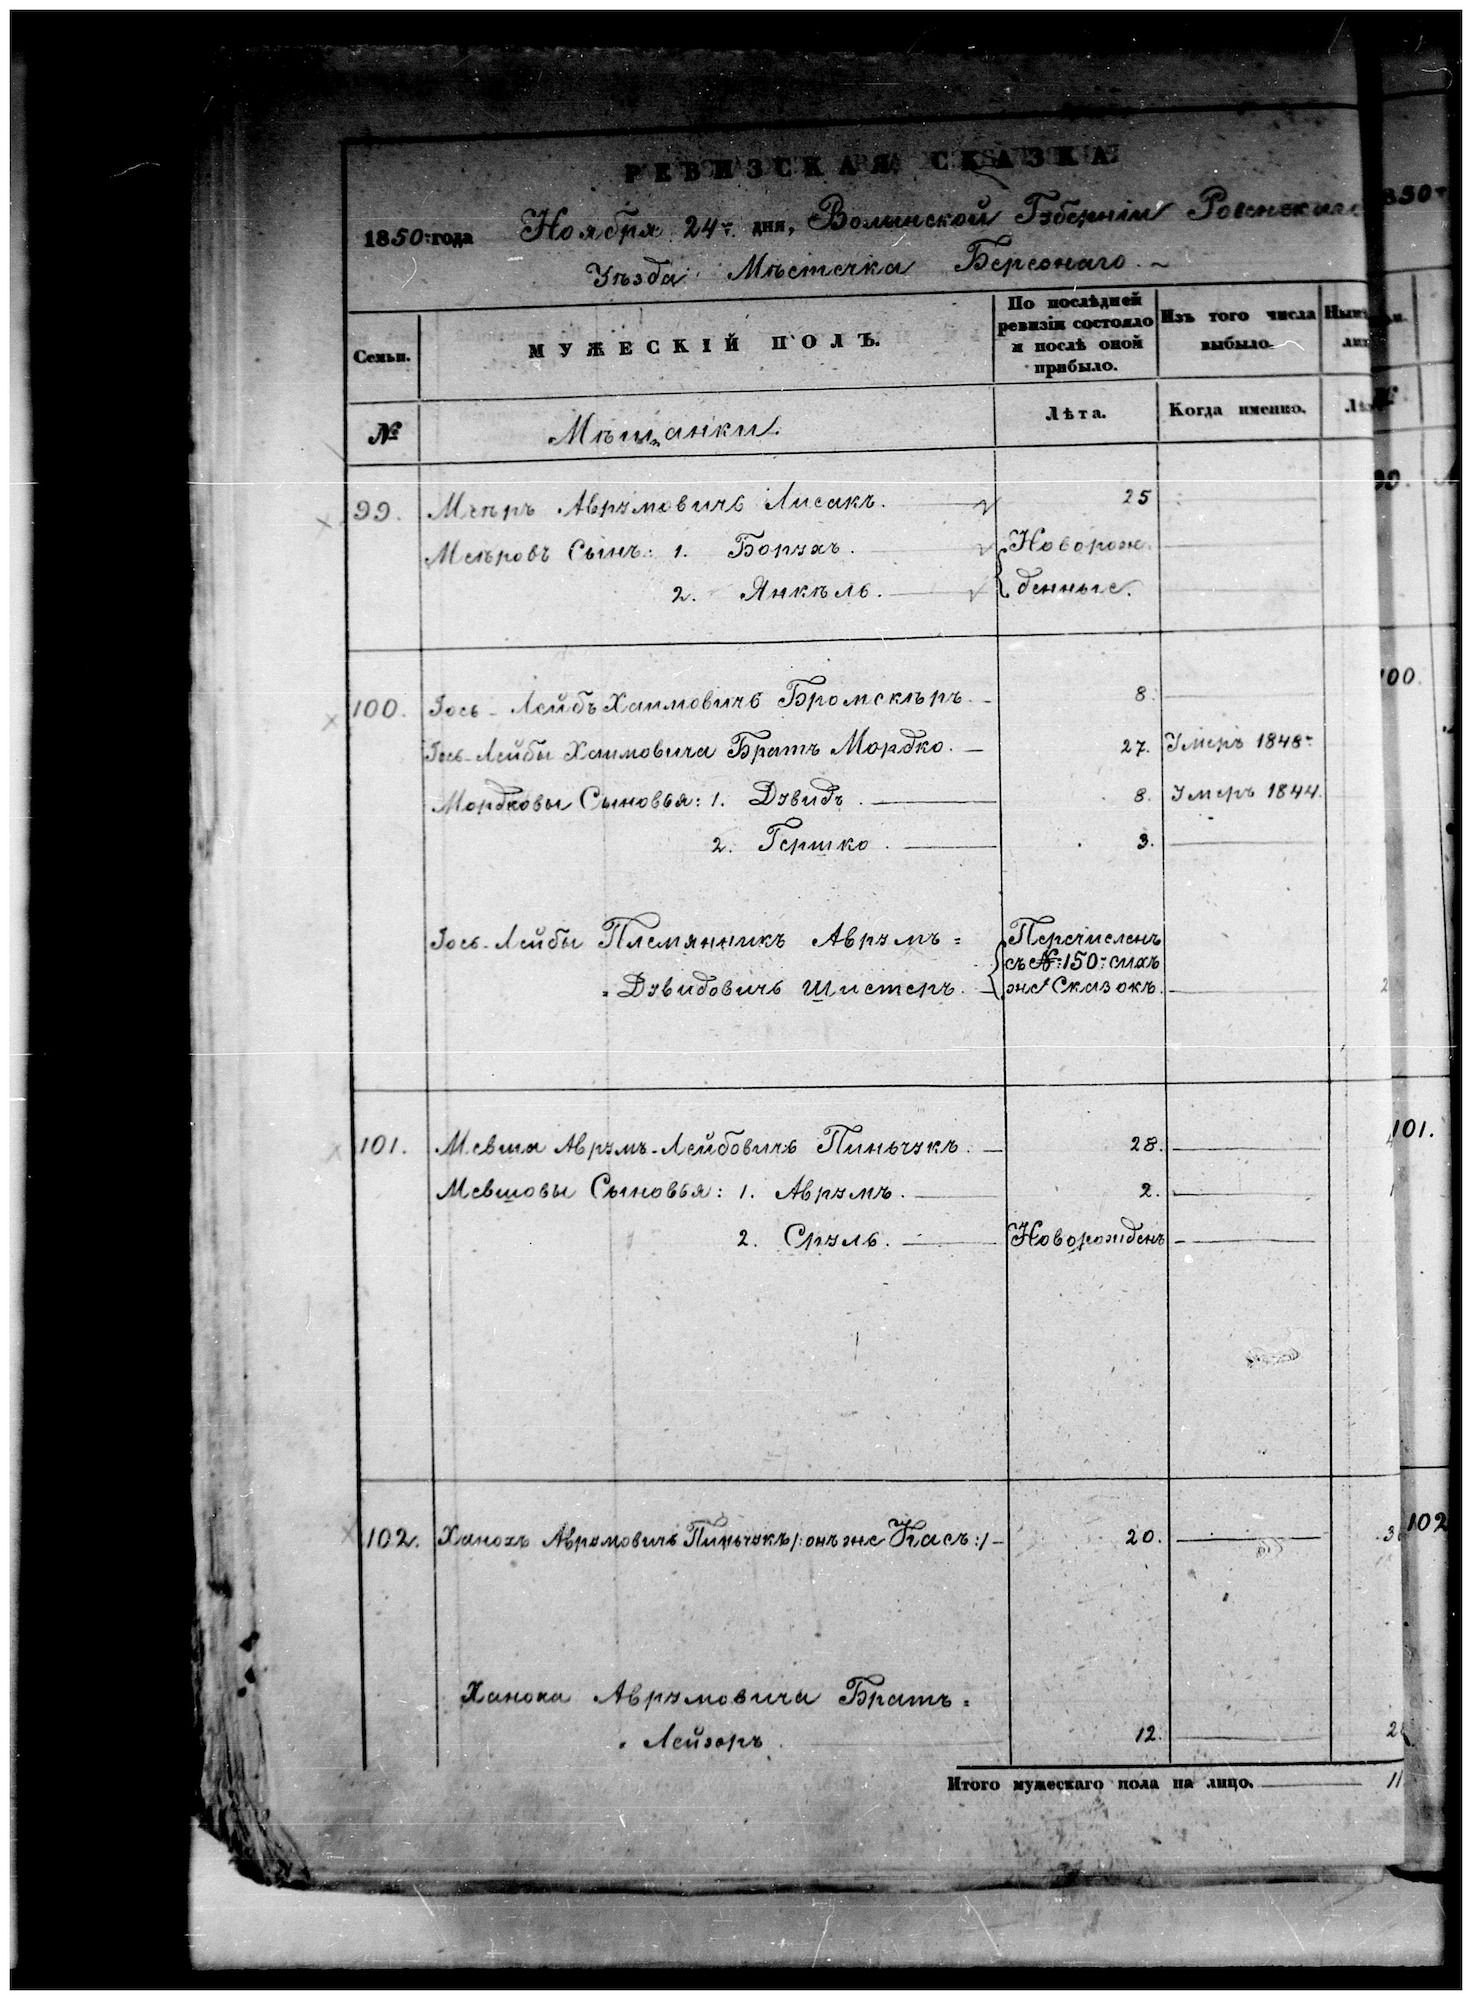 РЕВИЗСКАЯ СКАЗКА
1850 года Ноября 24 дня, Волынской Губерніи Ровенскаго
Уѣзда Мѣстечка Березнаго
Семьи. МУЖЕСКІЙ ПОЛЪ. По послѣдней ревизіи состояло и послѣ оной прибыло. Изъ того числа выбыло.
№ Мѣщанки. Лѣта. Когда именно.
99. Меѣръ Аврумовичъ Лисакъ. 25
Меѣровъ Сынъ: 1. Борухъ. Новорож
2. Янкѣль. денные.
100. Іось-Лейбъ Хаимовичъ Бромскѣръ. 8.
Іось-Лейбы Хаимовича Братъ Мордко. 27. Умеръ 1848
Мордковы Сыновья: 1. Дувидъ. 8. Умеръ 1844.
2. Гершко. 3.
Іось-Лейбы Племянникъ Аврумъ = Перечисленъ
съ №: 150: сихъ
= Дувидовичъ Шистеръ. же Сказокъ.
101. Мевша Аврумъ-Лейбовичъ Пинчукъ. 28. 101.
Мевшовы Сыновья: 1. Аврумъ. 2.
2. Сруль. Новорожденъ
102. Ханохъ Аврумовичъ Пинчукъ /: онъ же Касъ :/ 20. 102
Ханоха Аврумовича Братъ =
= Лейзоръ. 12.
Итого мужескаго пола на лицо. 11